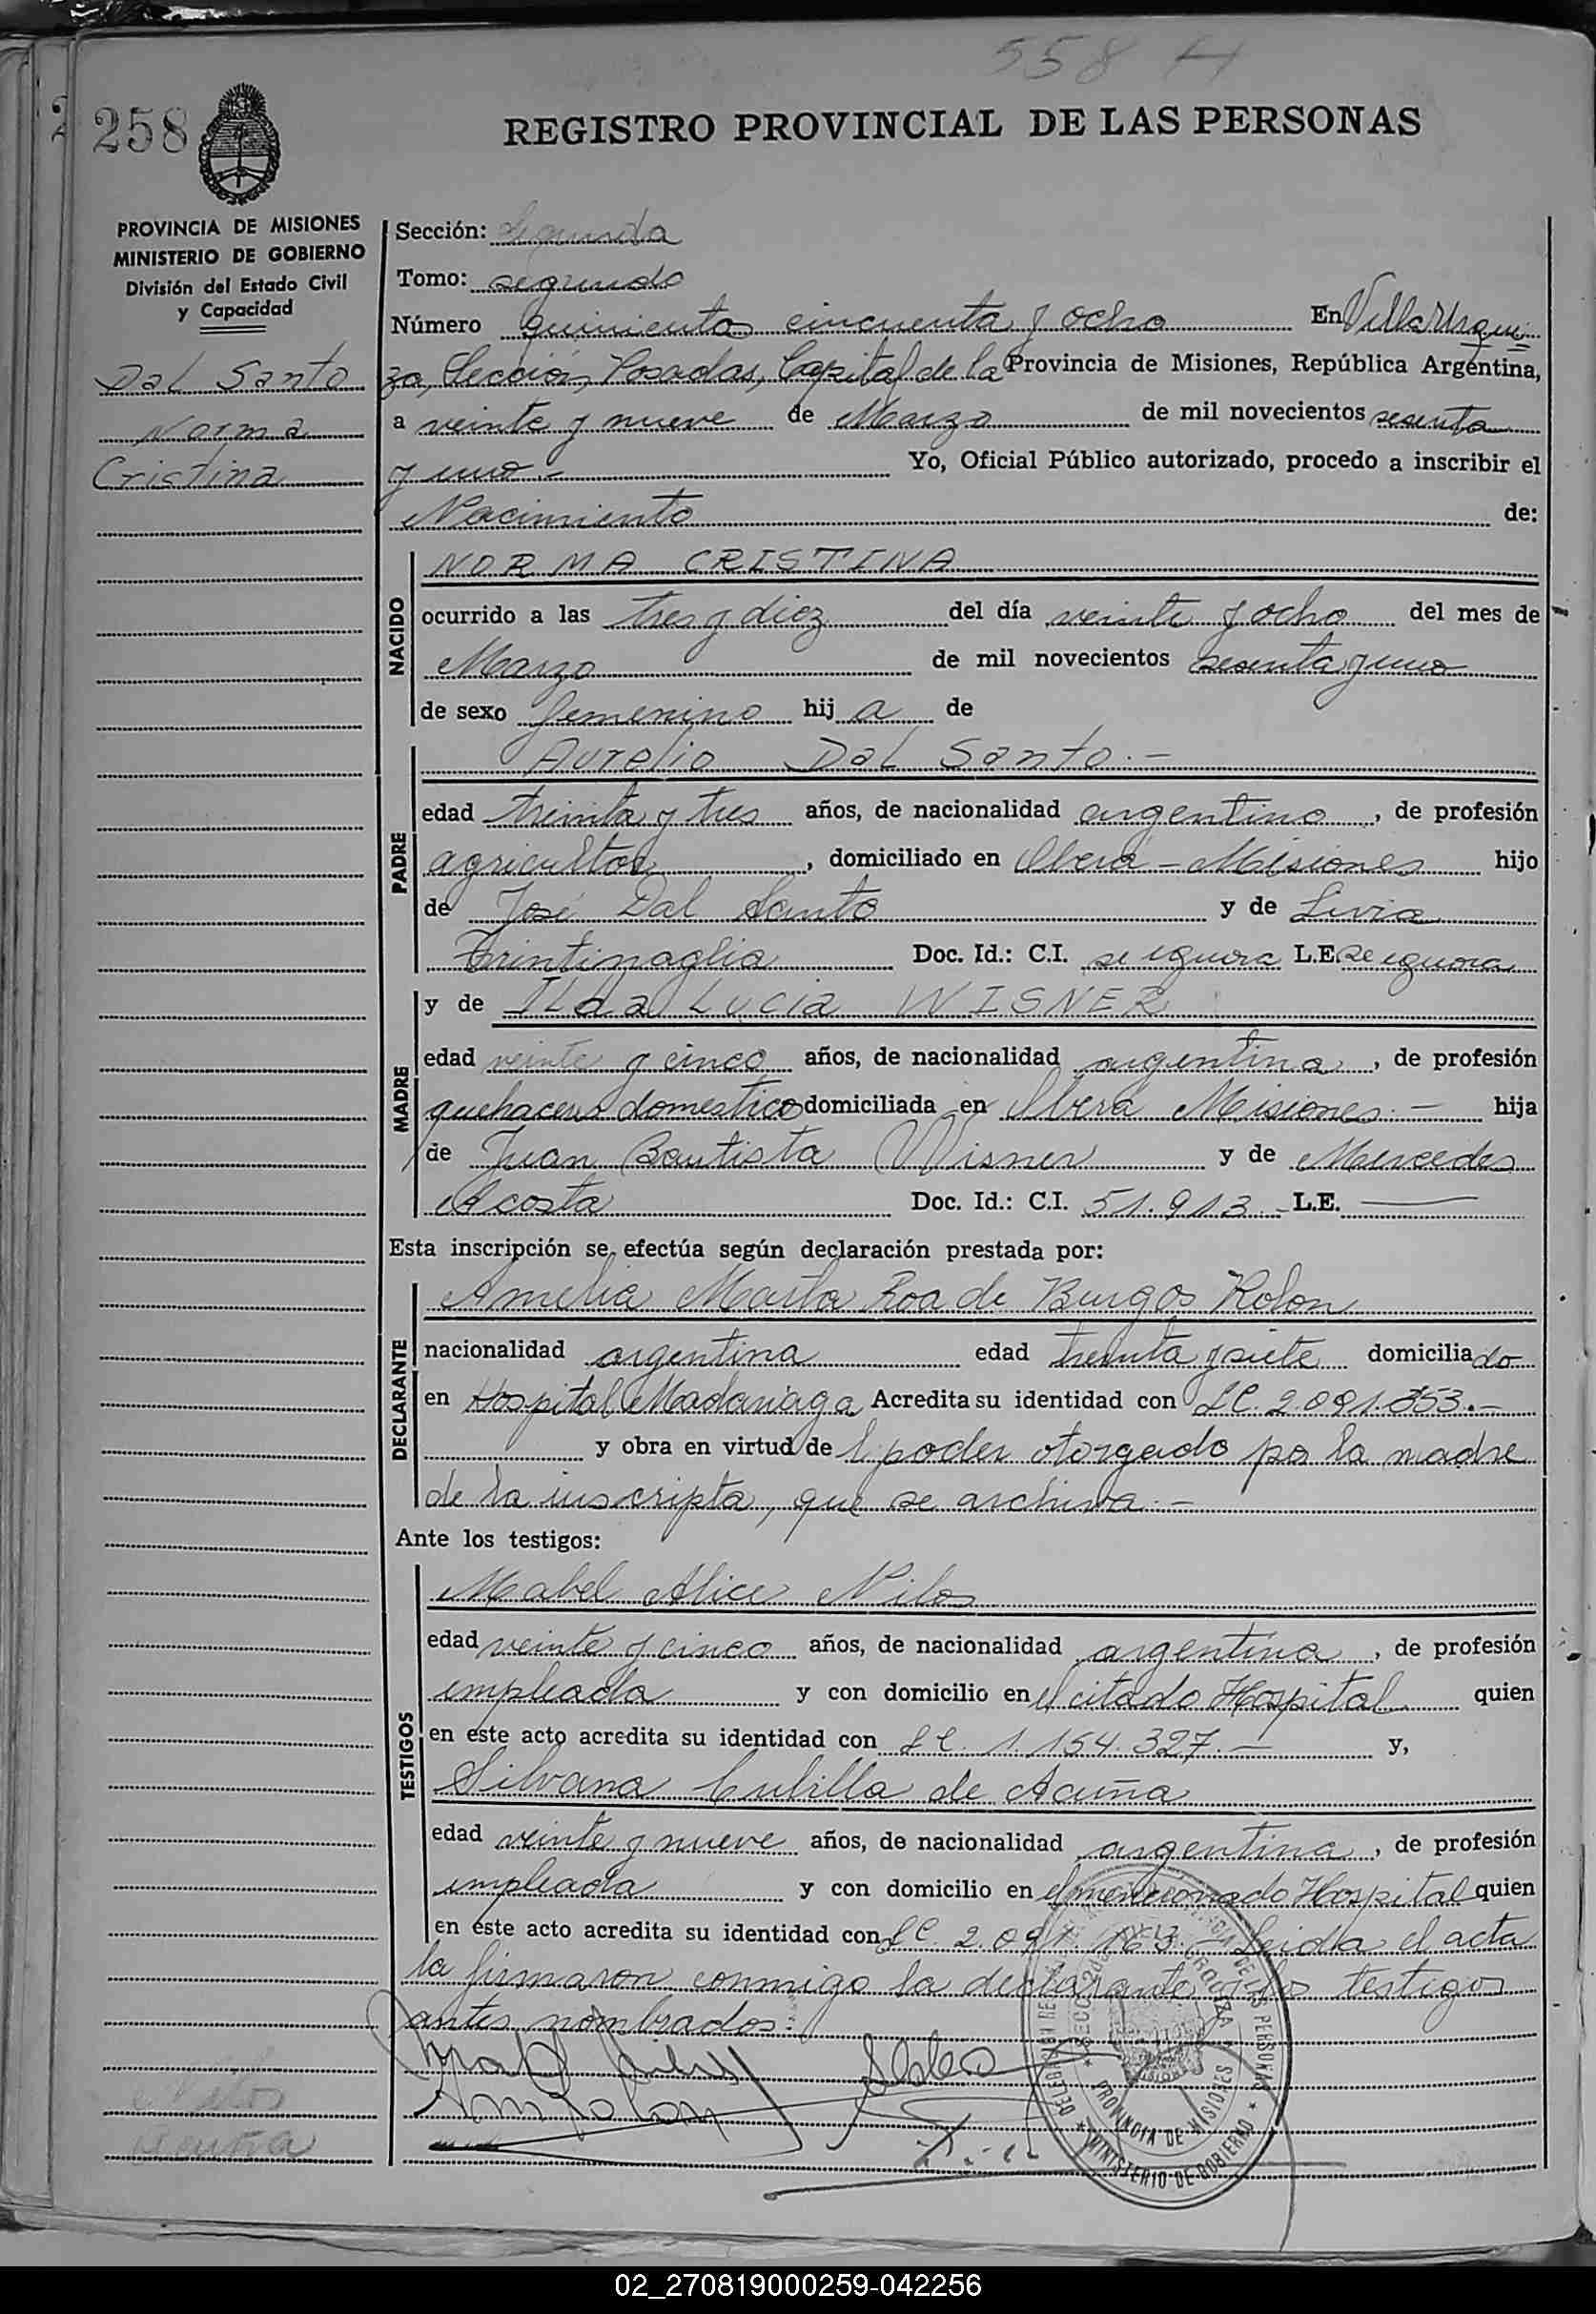 558 H
258
REGISTRO PROVINCIAL DE LAS PERSONAS
PROVINCIA DE MISIONES
MINISTERIO DE GOBIERNO
División del Estado Civil
y Capacidad
Dal Santo
Norma
Cristina
Sección: Segunda
Tomo: segundo
Número quinientos cincuenta y ocho En Villa Urqui
za, Sección, Posadas, Capital de la Provincia de Misiones, República Argentina,
a veinte y nueve de Marzo de mil novecientos sesenta
y uno.- Yo, Oficial Público autorizado, procedo a inscribir el
Nacimiento de:
NACIDO
NORMA CRISTINA
ocurrido a las tres y diez del día veinte y ocho del mes de
Marzo de mil novecientos sesenta y uno
de sexo femenino hij a de
PADRE
Aurelio Dal Santo.-
edad treinta y tres años, de nacionalidad argentino, de profesión
agricultor, domiciliado en Oberá - Misiones hijo
de José Dal Santo y de Livia
Trintinaglia Doc. Id.: C.I. se ignora L.E. se ignora
MADRE
y de Ilda Lucia WISNER
edad veinte y cinco años, de nacionalidad argentina, de profesión
quehaceres domestico domiciliada en Oberá Misiones.- hija
de Juan Bautista Wisner y de Mercedes
Acosta Doc. Id.: C.I. 51.913.- L.E. —
Esta inscripción se efectúa según declaración prestada por:
DECLARANTE
Amelia Marta Roa de Burgos Rolon
nacionalidad argentina edad treinta y siete domiciliado
en Hospital Madariaga Acredita su identidad con LC. 2.091.853.-
y obra en virtud de l poder otorgado po la madre
de la inscripta, que se archiva.-
Ante los testigos:
TESTIGOS
Mabel Alice Nilos
edad veinte y cinco años, de nacionalidad argentina, de profesión
empleada y con domicilio en el citado Hospital quien
en este acto acredita su identidad con LC. 1.154.327.- y,
Silvana Cubilla de Acuña
edad veinte y nueve años, de nacionalidad argentina, de profesión
empleada y con domicilio en el mencionado Hospital quien
en este acto acredita su identidad con LC. 2.091.163.- Leida el acta
la firmaron conmigo la declarante y los testigos
antes nombrados.
PROVINCIA DE MISIONES
MINISTERIO DE GOBIERNO
02_270819000259-042256